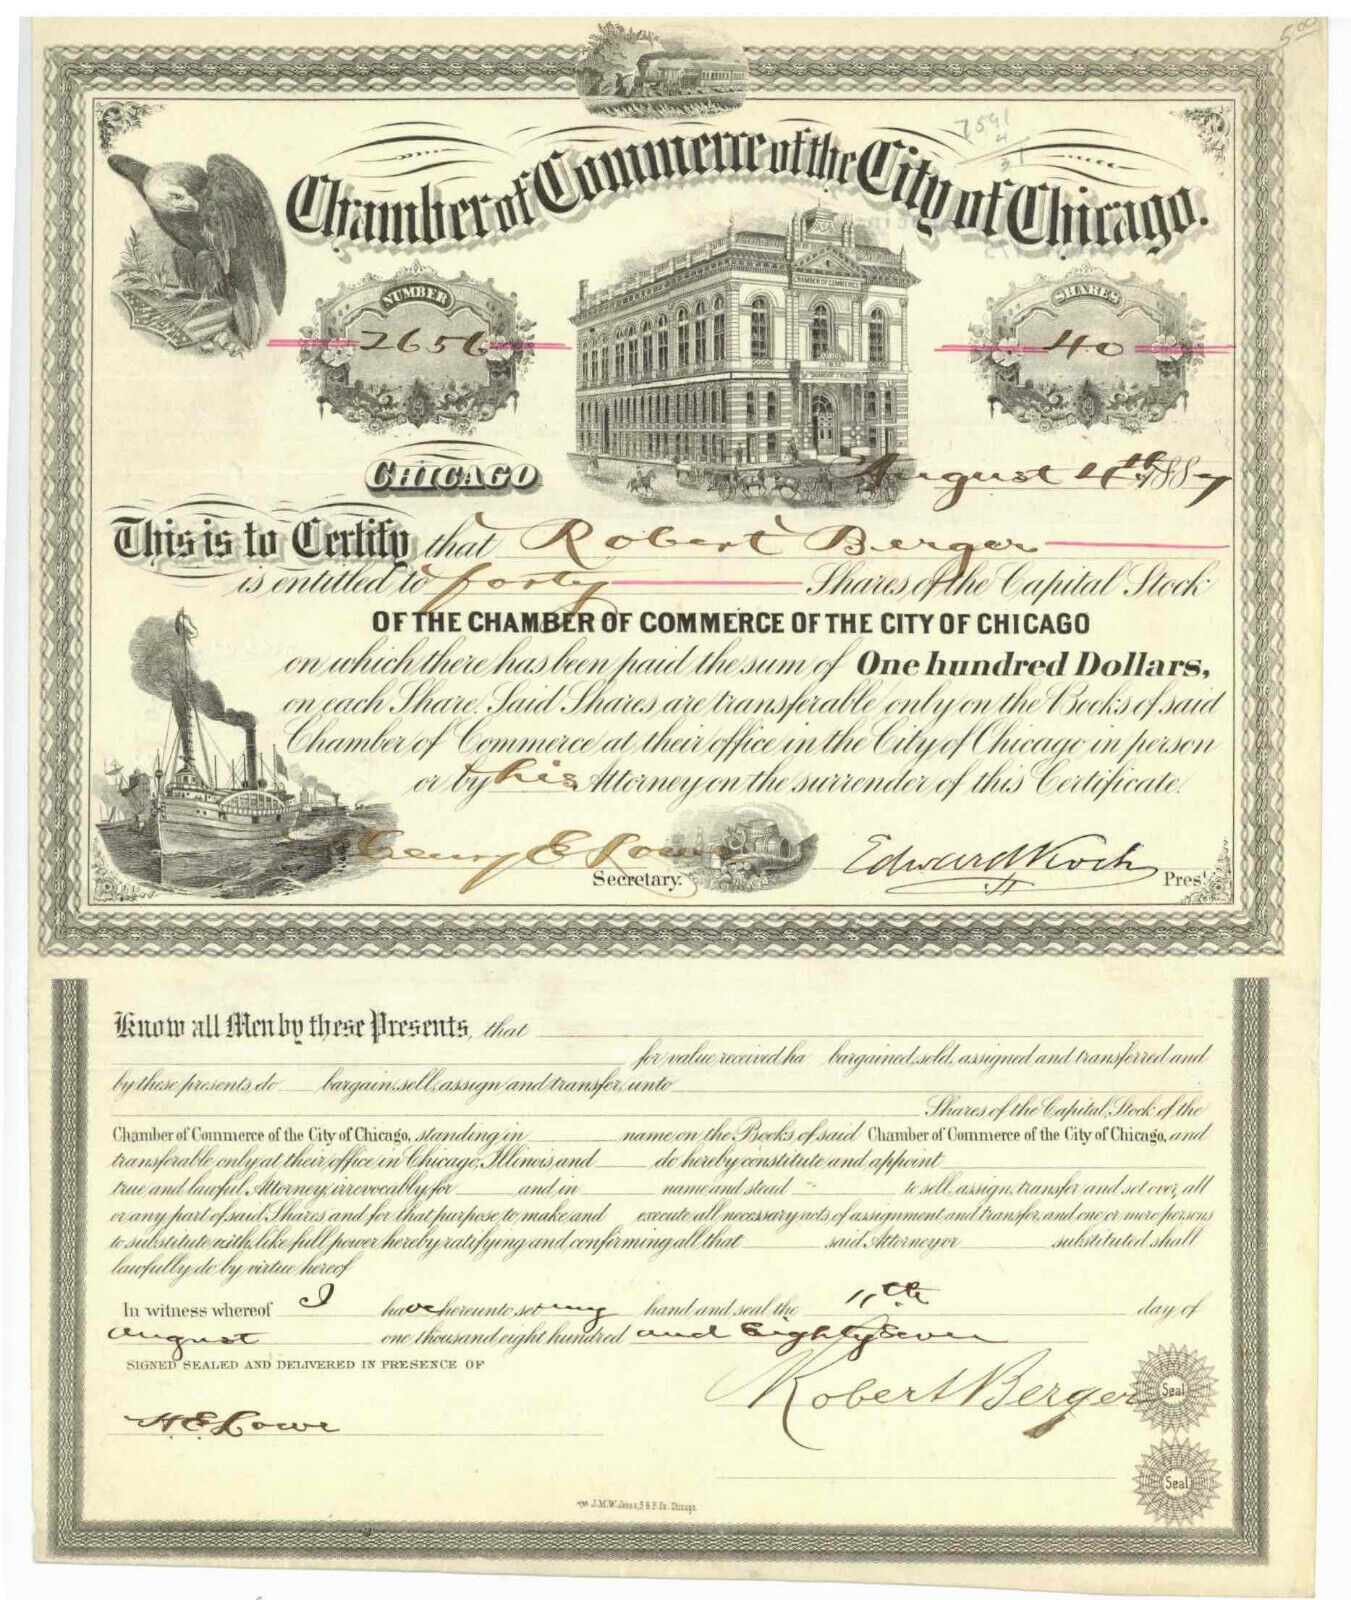 5.00
7591
4
Chamber of Commerce of the City of Chicago.
NUMBER
2656
CHAMBER OF COMMERCE
SHARES
40
CHICAGO August 4th 1887
This is to Certify that Robert Berger
is entitled to forty Shares of the Capital Stock
OF THE CHAMBER OF COMMERCE OF THE CITY OF CHICAGO
on which there has been paid the sum of One hundred Dollars,
on each Share. Said Shares are transferable only on the Books of said
Chamber of Commerce at their office in the City of Chicago in person
or by his Attorney on the surrender of this Certificate.
Henry E Lowe Edward Koch
Secretary. Pres't
Know all Men by these Presents, that
for value received ha bargained, sold, assigned and transferred and
by these presents do bargain, sell, assign and transfer, unto
Shares of the Capital Stock of the
Chamber of Commerce of the City of Chicago, standing in name on the Books of said Chamber of Commerce of the City of Chicago, and
transferable only at their office in Chicago, Illinois and do hereby constitute and appoint
true and lawful Attorney, irrevocably for and in name and stead to sell, assign, transfer and set over, all
or any part of said Shares and for that purpose, to make and execute all necessary acts of assignment and transfer, and one or more persons
to substitute with like full power hereby ratifying and confirming all that said Attorney or substituted shall
lawfully do by virtue hereof
In witness whereof I have hereunto set my hand and seal the 11th day of
August one thousand, eight hundred and Eighty Seven
SIGNED SEALED AND DELIVERED IN PRESENCE OF
Robert Berger Seal
H. E. Lowe
Seal
The J.M.W. Jones, S & P. Co. Chicago.